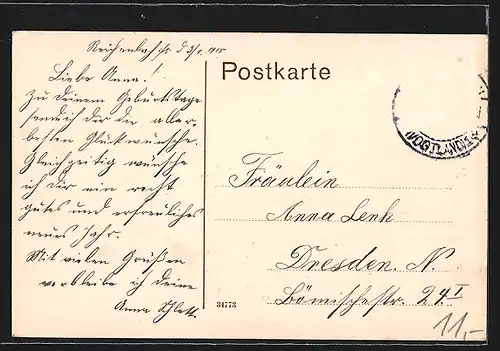 Reichenbach i/V. d 3/1. 1915
Liebe Anna!
Zu Deinem Geburtstage
sende ich Dir die aller-
besten Glückwünsche.
Gleichzeitig wünsche
ich Dir ein recht
gutes und erfreuliches
neues Jahr.
Mit vielen Grüßen
verbleibe ich Deine
Anna Schlett.
Postkarte
(VOGTLAND)
Fräulein
Anna Lenk
Dresden. N
Bömischestr. 24 I
34773
11,-